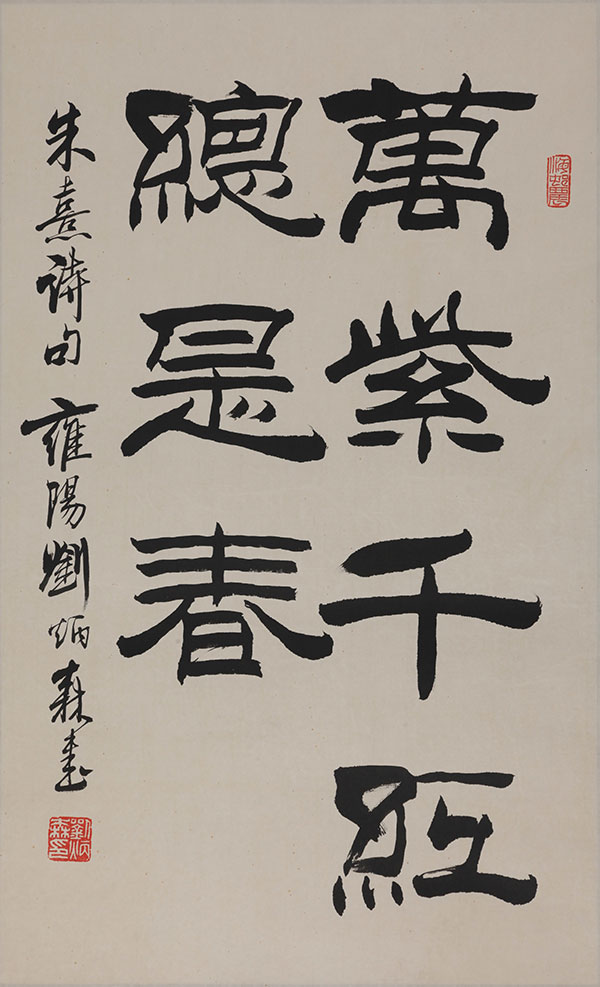 萬紫千紅
總是春
朱熹詩句 雍陽劉炳森書
劉炳森印